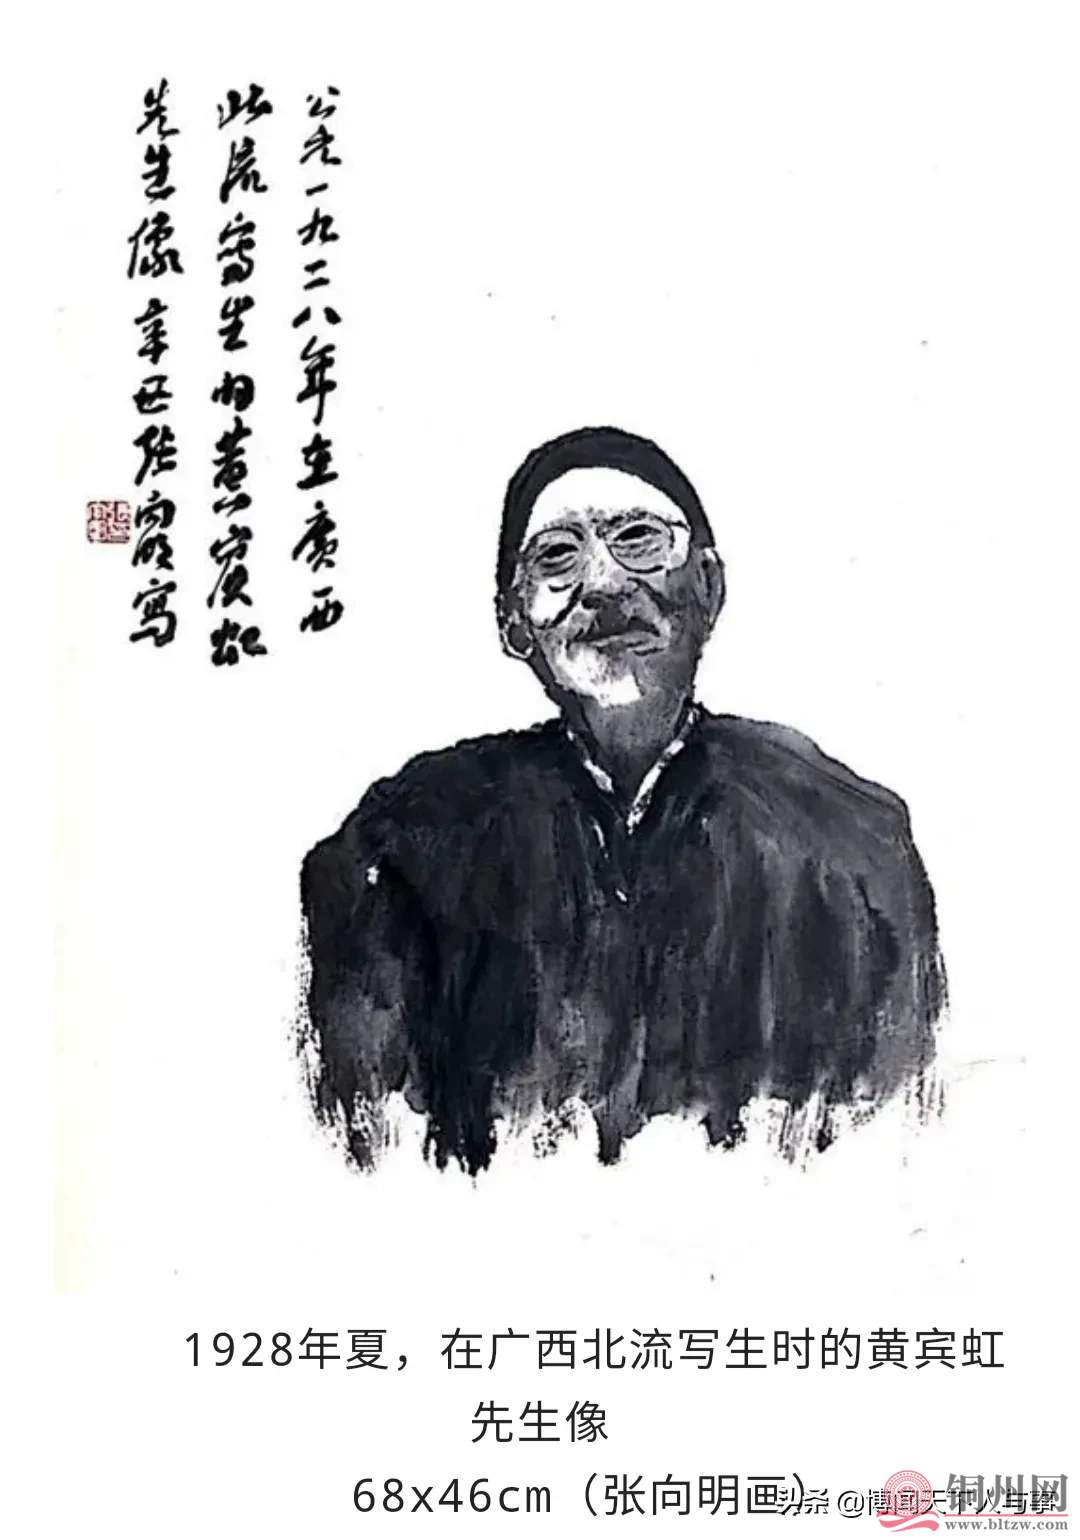 公元一九二八年在廣西
北流寫生时黄賓虹
先生像辛丑张向明寫
1928年夏，在广西北流写生时的黄宾虹
先生像
68x46cm（张向明画）
头条 @博闻天下人与事
铜州网
www.bltzw.com